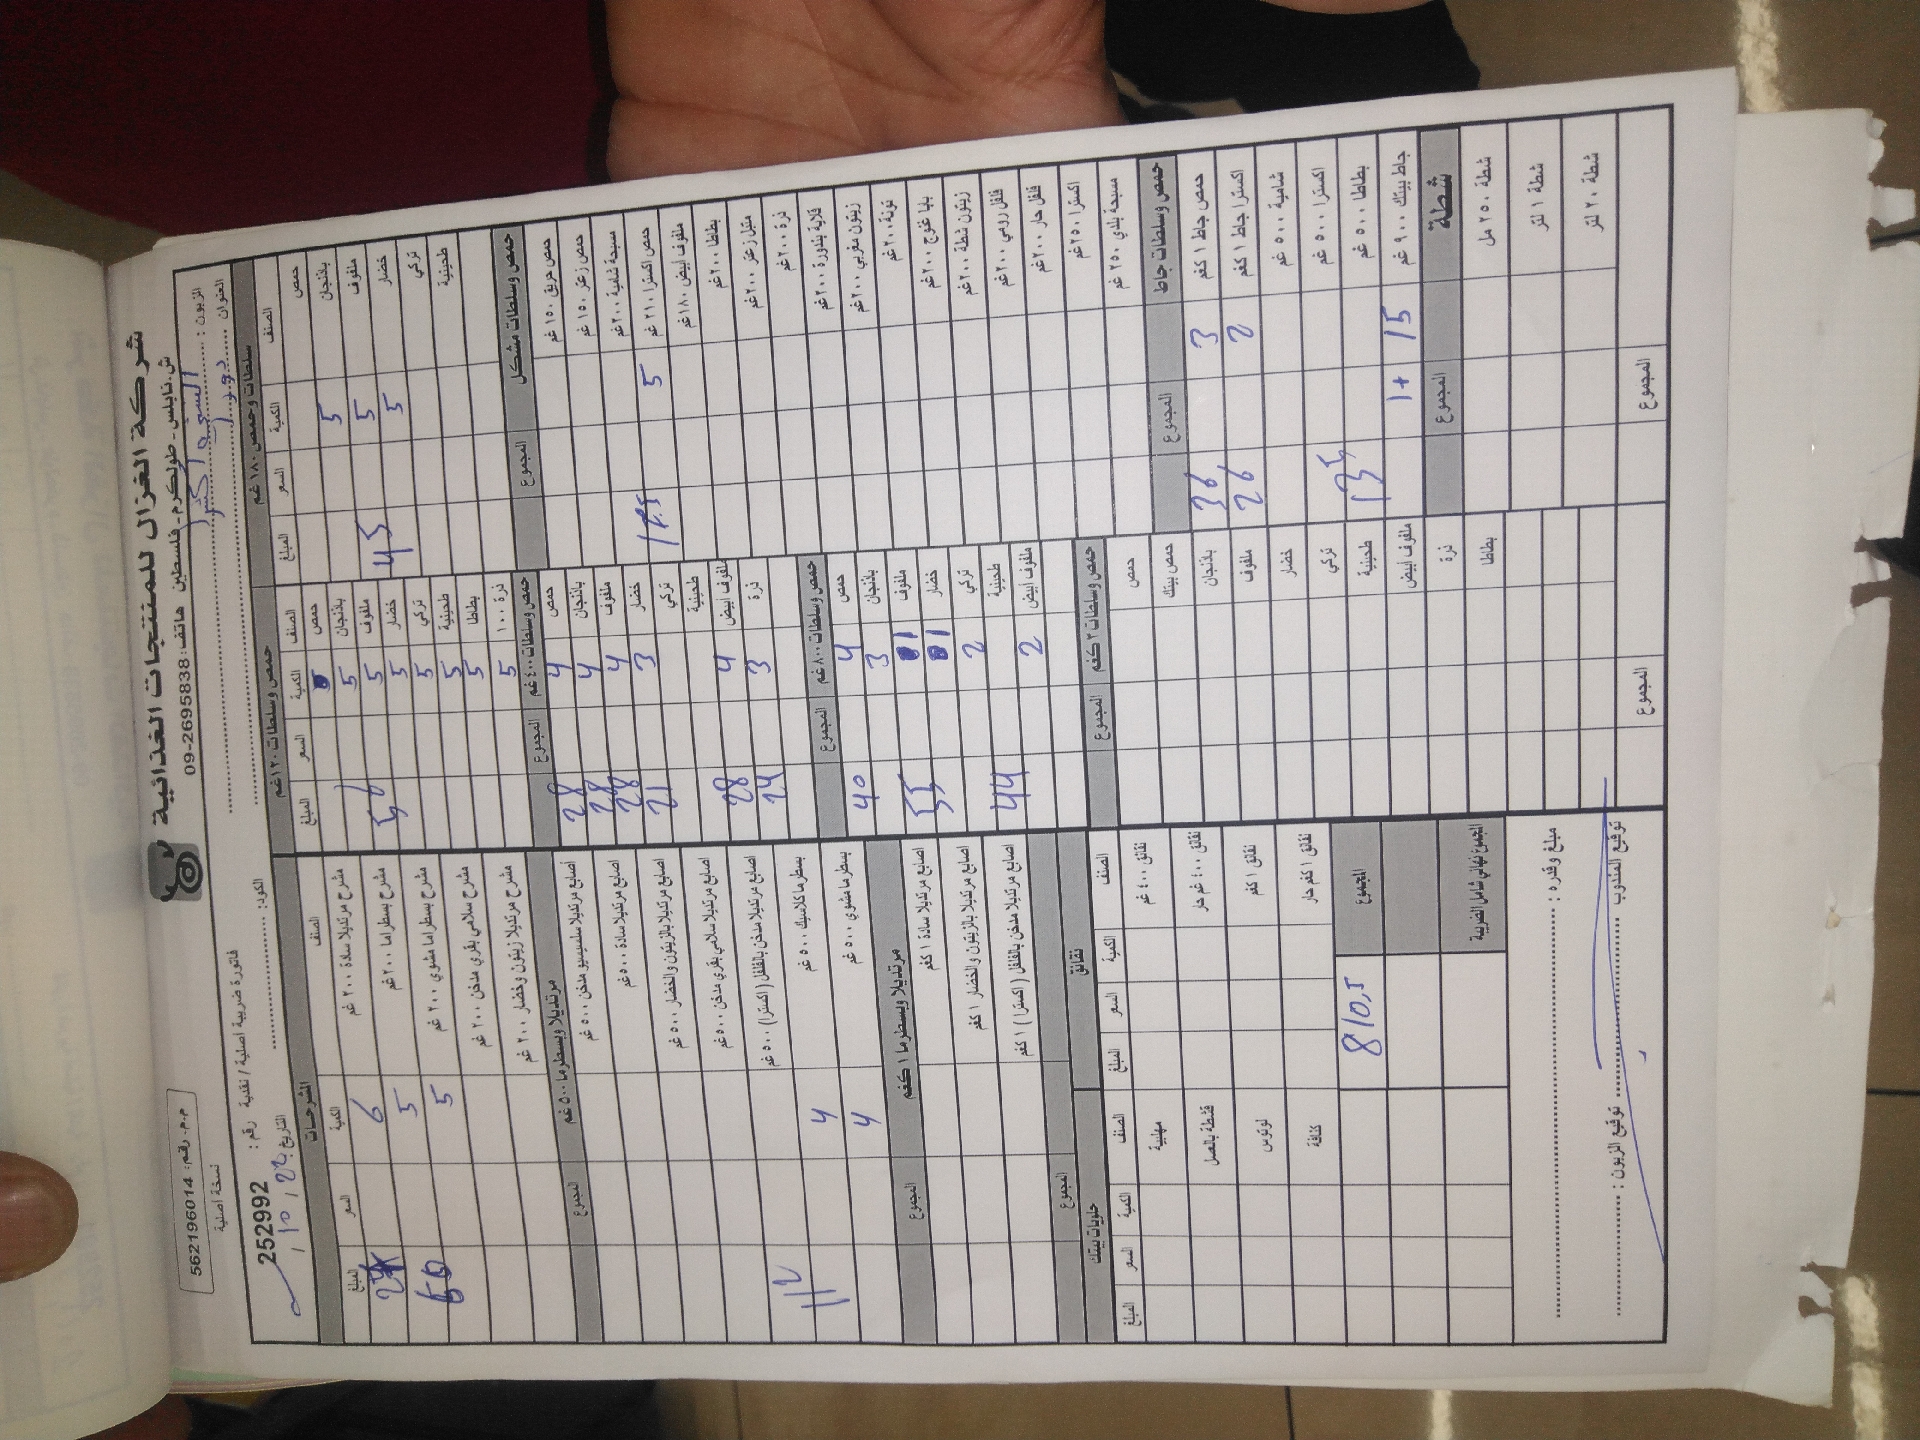 شركة الغزال للمنتجات الغذائية
ش. نابلس - طولكرم - فلسطين هاتف: 09-2695838
م.م. رقم: 562196014
نسخة أصلية
الزبون :
العنوان
الكود:
فاتورة ضريبية أصلية / نقدية رقم : 252992
التاريخ:
سلطات وحمص ١٨٠ غم
الصنف الكمية السعر المبلغ
حمص
باذنجان 5
ملفوف 5
خضار 5 45
تركي
طحينية
حمص وسلطات مشكل المجموع
حمص حريق ١٥٠ غم
حمص زعتر ١٥٠ غم
مسبحة شامية ٢٠٠ غم
حمص اكسترا ٢١٠ غم 5
ملفوف أبيض ١٨٠ غم
بطاطا ٢٠٠ غم
متبل زعتر ٢٠٠ غم
ذرة ٢٠٠ غم
قلاية بندورة ٢٠٠ غم
زيتون مغربي ٢٠٠ غم
تونة ٢٠٠ غم
بابا غنوج ٢٠٠ غم
زيتون شطة ٢٠٠ غم
فلفل رومي ٢٠٠ غم
فلفل حار ٢٠٠ غم
اكسترا ٢٥٠ غم
مسبحة بلدي ٢٥٠ غم
حمص وسلطات جاط المجموع
حمص جاط ١ كغم 3 36
اكسترا جاط ١ كغم 2 26
شامية ٥٠٠ غم
اكسترا ٥٠٠ غم
بطاطا ٥٠٠ غم
جاط بيتك ٩٠٠ غم 15 + 1 135
شطة المجموع
شطة ٢٥٠ مل
شطة ١ لتر
شطة ٢٠ لتر
المجموع
حمص وسلطات ١٢٠ غم
الصنف الكمية السعر المبلغ
حمص 5
باذنجان 5
ملفوف 5
خضار 5 56
تركي 5
طحينية 5
بطاطا 5
ذرة ١٠٠ 5
حمص وسلطات ٤٠٠ غم المجموع
حمص 4 28
باذنجان 4 28
ملفوف 4 28
خضار 3 21
تركي
طحينية
ملفوف أبيض 4 28
ذرة 3 24
حمص وسلطات ٨٠٠ غم المجموع
حمص 4 40
باذنجان 3
ملفوف 1 55
خضار 1
تركي 2
طحينية 44
ملفوف أبيض 2
حمص وسلطات ٣ كغم المجموع
حمص
حمص بيتك
باذنجان
ملفوف
خضار
تركي
طحينية
ملفوف أبيض
ذرة
بطاطا
المجموع
المشرحات
الصنف الكمية السعر المبلغ
مشرح مرتديلا سادة ٢٠٠ غم
مشرح بسطراما ٢٠٠ غم 6
مشرح بسطراما مشوي ٢٠٠ غم 5
مشرح سلامي بقري مدخن ٢٠٠ غم 5
مشرح مرتديلا زيتون وخضار ٢٠٠ غم
مرتديلا وبسطرما ٥٠٠ غم المجموع
اصابع مرتديلا سلمبيو مدخن ٥٠٠ غم
اصابع مرتديلا سادة ٥٠٠ غم
اصابع مرتديلا بالزيتون والخضار ٥٠٠ غم
اصابع مرتديلا سلامي بقري مدخن ٥٠٠ غم
اصابع مرتديلا مدخن بالفلفل (اكسترا) ٥٠٠ غم
بسطرما كلاسيك ٥٠٠ غم 4 112
بسطرما مشوي ٥٠٠ غم 4
مرتديلا وبسطرما ١ كغم المجموع
اصابع مرتديلا سادة ١ كغم
اصابع مرتديلا بالزيتون والخضار ١ كغم
اصابع مرتديلا مدخن بالفلفل ( اكسترا ) ١ كغم
المجموع
نقانق
الصنف الكمية السعر المبلغ
نقانق ٤٠٠ غم
نقانق ٤٠٠ غم حار
نقانق ١ كغم
نقانق ١ كغم حار
حلويات بيتك
الصنف الكمية السعر المبلغ
مهلبية
قشطة بالعسل
لوتوس
كنافة
المجموع 810,5
المجموع نهائي شامل الضريبة
مبلغ وقدره :
توقيع المندوب
توقيع الزبون :